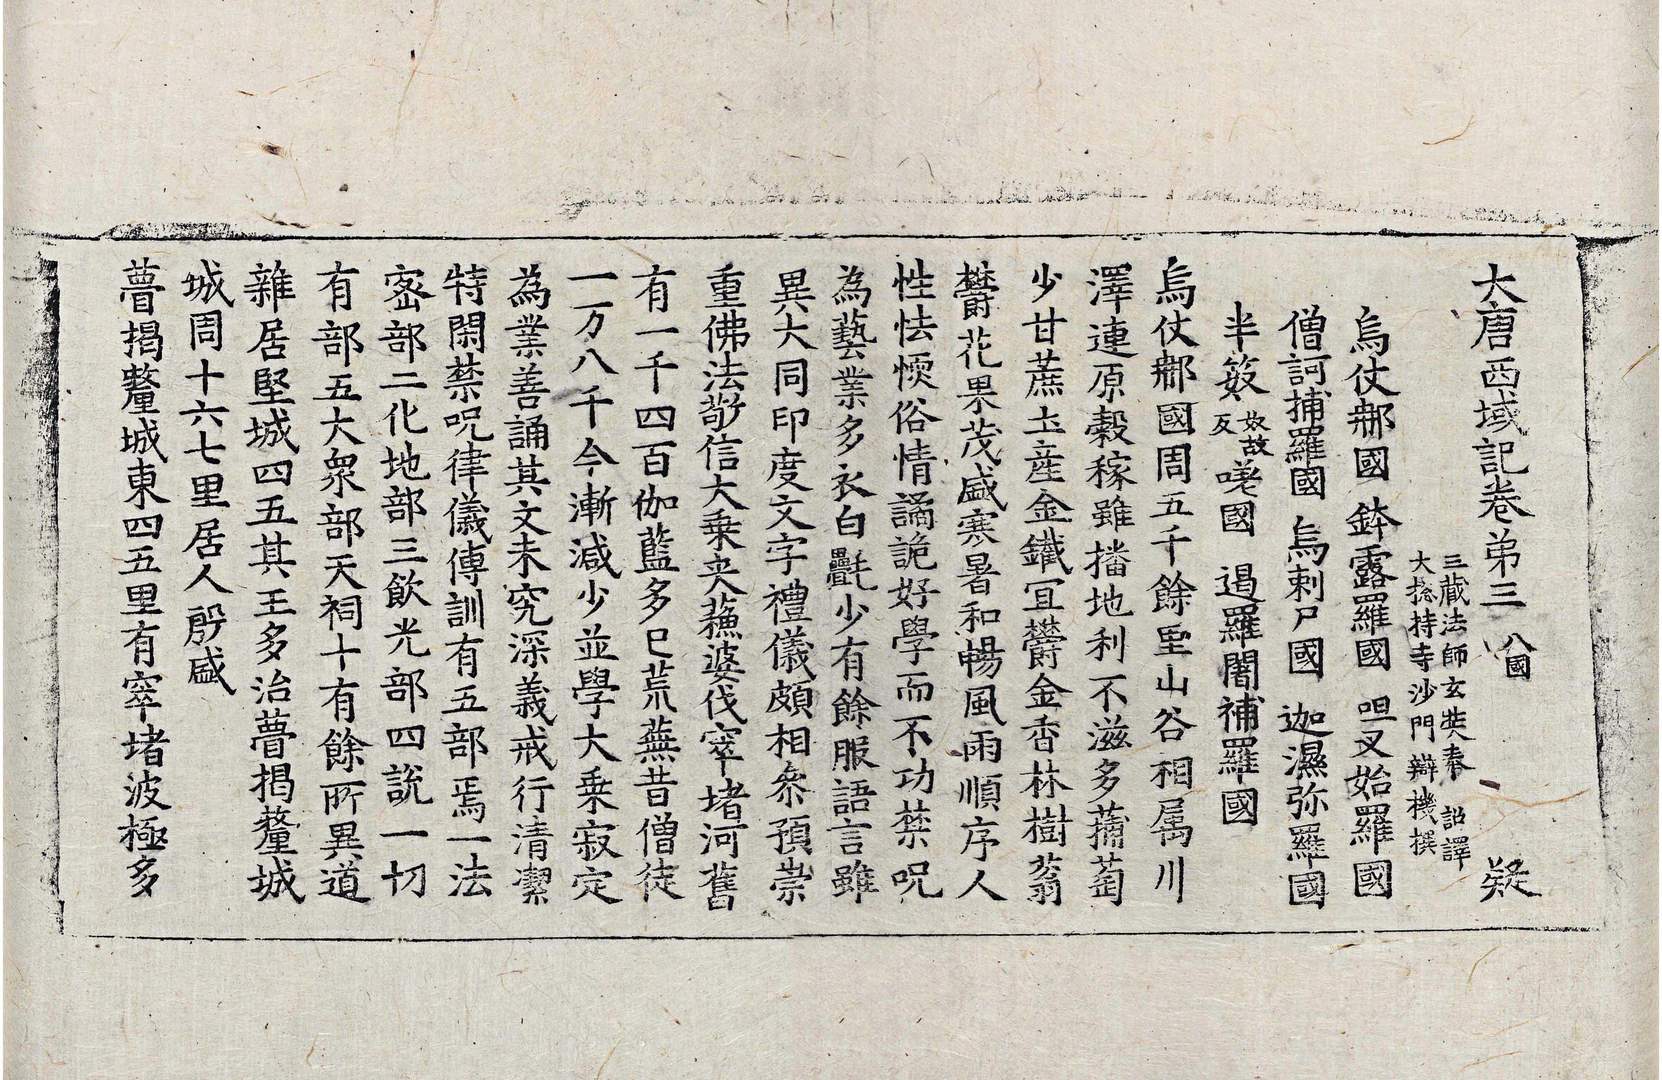 大唐西域記卷苐三 八國 疑
三藏法師玄奘奉 詔譯
大捴持寺沙門辯機撰
烏仗郍國 鉢露羅國 呾叉始羅國
僧訶捕羅國 烏剌尸國 迦濕弥羅國
半笯 奴故反 嗟國 遏羅闍補羅國
烏仗郍國周五千餘里山谷相属川
澤連原糓稼雖播地利不滋多蒱萄
少甘蔗土產金鐵冝欝金香林樹蓊
欝花果茂盛寒暑和暢風雨順序人
性怯愞俗情譎詭好學而不功禁呪
為藝業多衣白㲲少有餘服語言雖
異大同印度文字禮儀頗相叅預崇
重佛法敬信大乗夾蘓婆伐窣堵河舊
有一千四百伽藍多已荒蕪昔僧徒
一万八千今漸減少並學大乗寂定
為業善誦其文未究深義戒行清潔
特閑禁呪律儀傳訓有五部焉一法
宻部二化地部三飲光部四說一切
有部五大衆部天祠十有餘所異道
雜居堅城四五其王多治瞢揭釐城
城周十六七里居人殷盛
瞢揭釐城東四五里有窣堵波極多